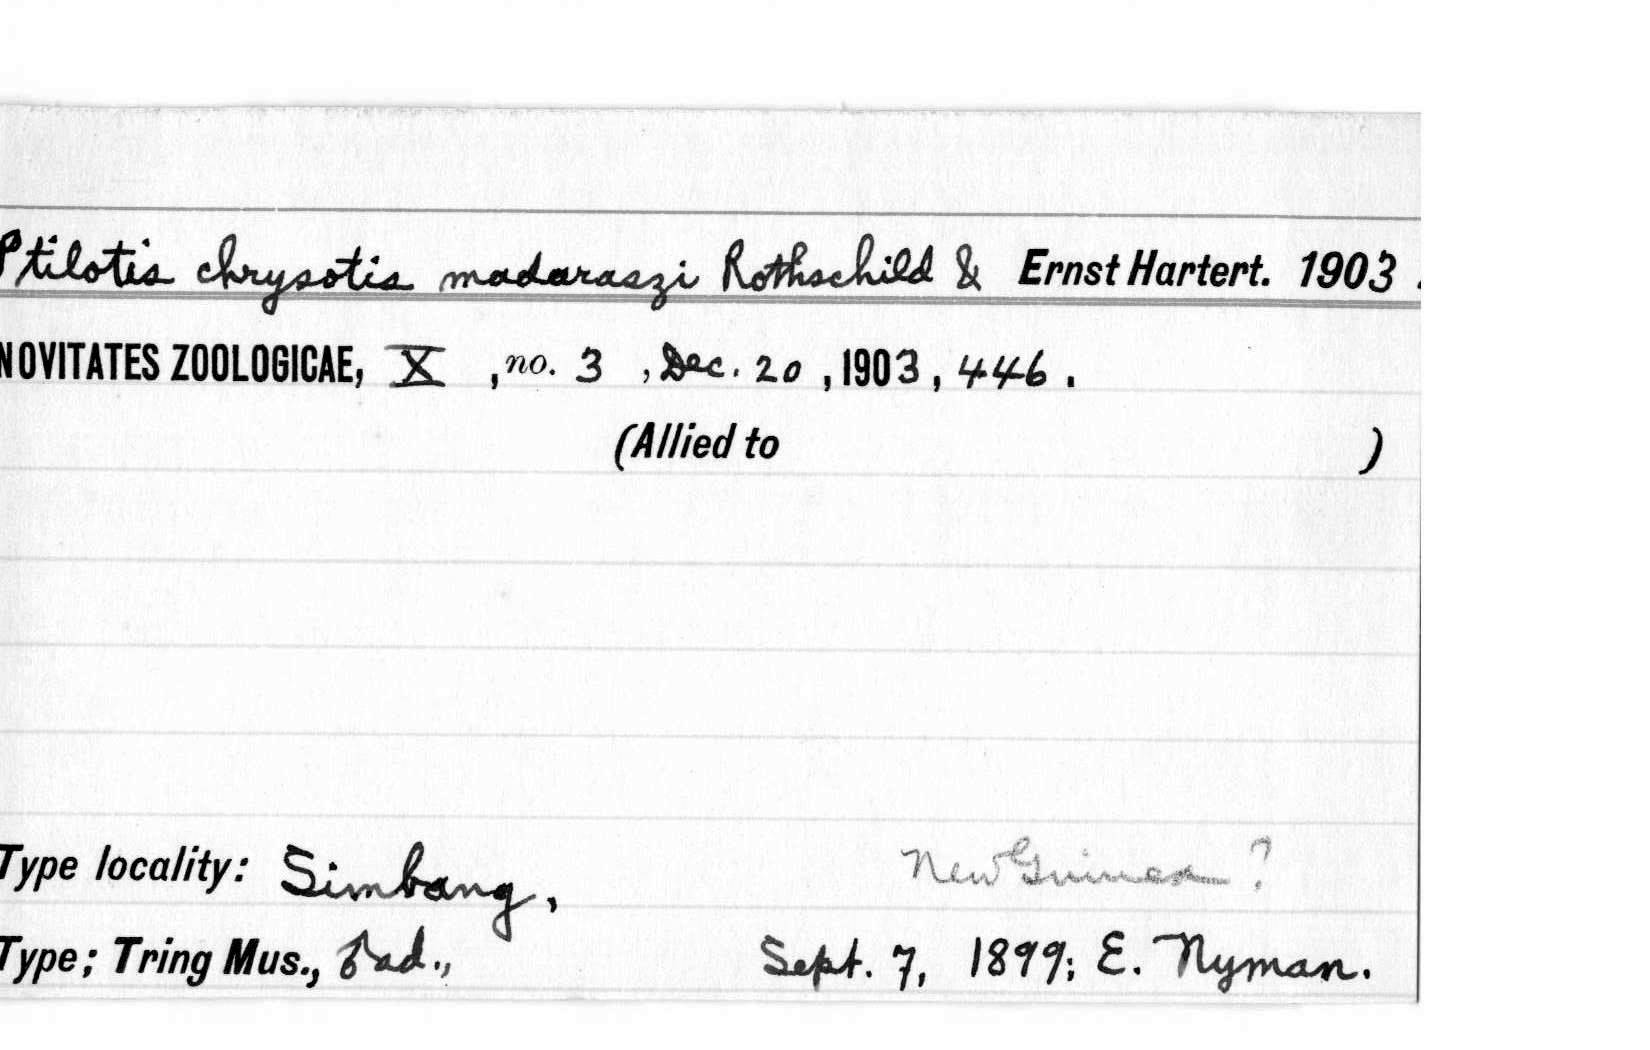 Ptilotis chrysotis madaraszi Rothschild & Ernst Hartert. 1903.
NOVITATES ZOOLOGICAE, X, no. 3, Dec. 20, 1903, 446.
(Allied to )
Type locality: Simbang, New Guinea?
Type; Tring Mus., ad., Sept. 7, 1899; E. Nyman.